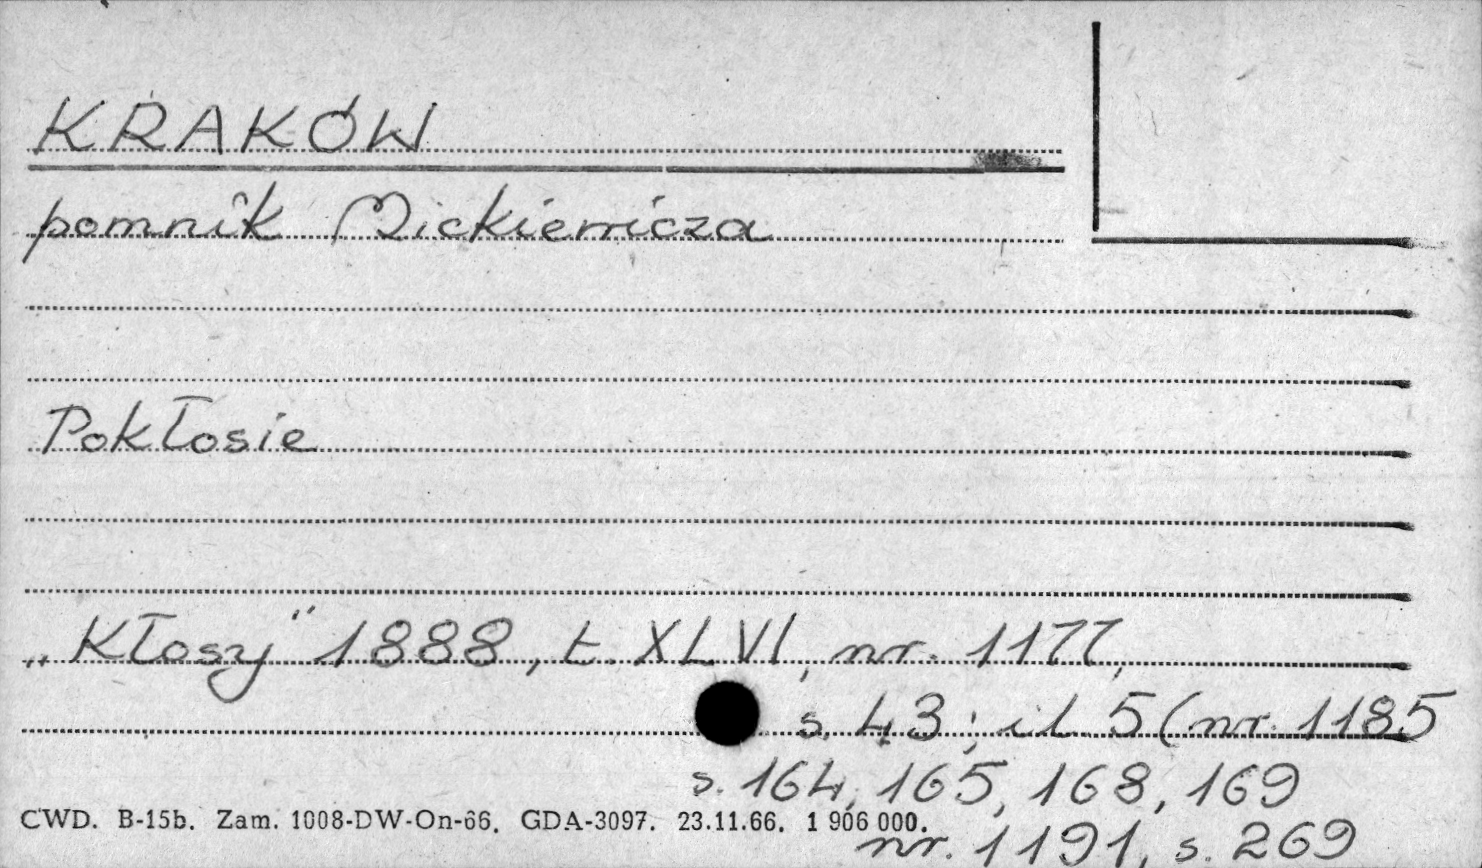 KRAKÓW
pomnik Mickiewicza
Pokłosie
„Kłosy" 1888, t. XLVI, nr. 1177,
s. 43; il. 5 (nr. 1185
s. 164, 165, 168, 169
CWD. B-15b. Zam. 1008-DW-On-66. GDA-3097. 23.11.66. 1 906 000.
nr. 1191, s. 269